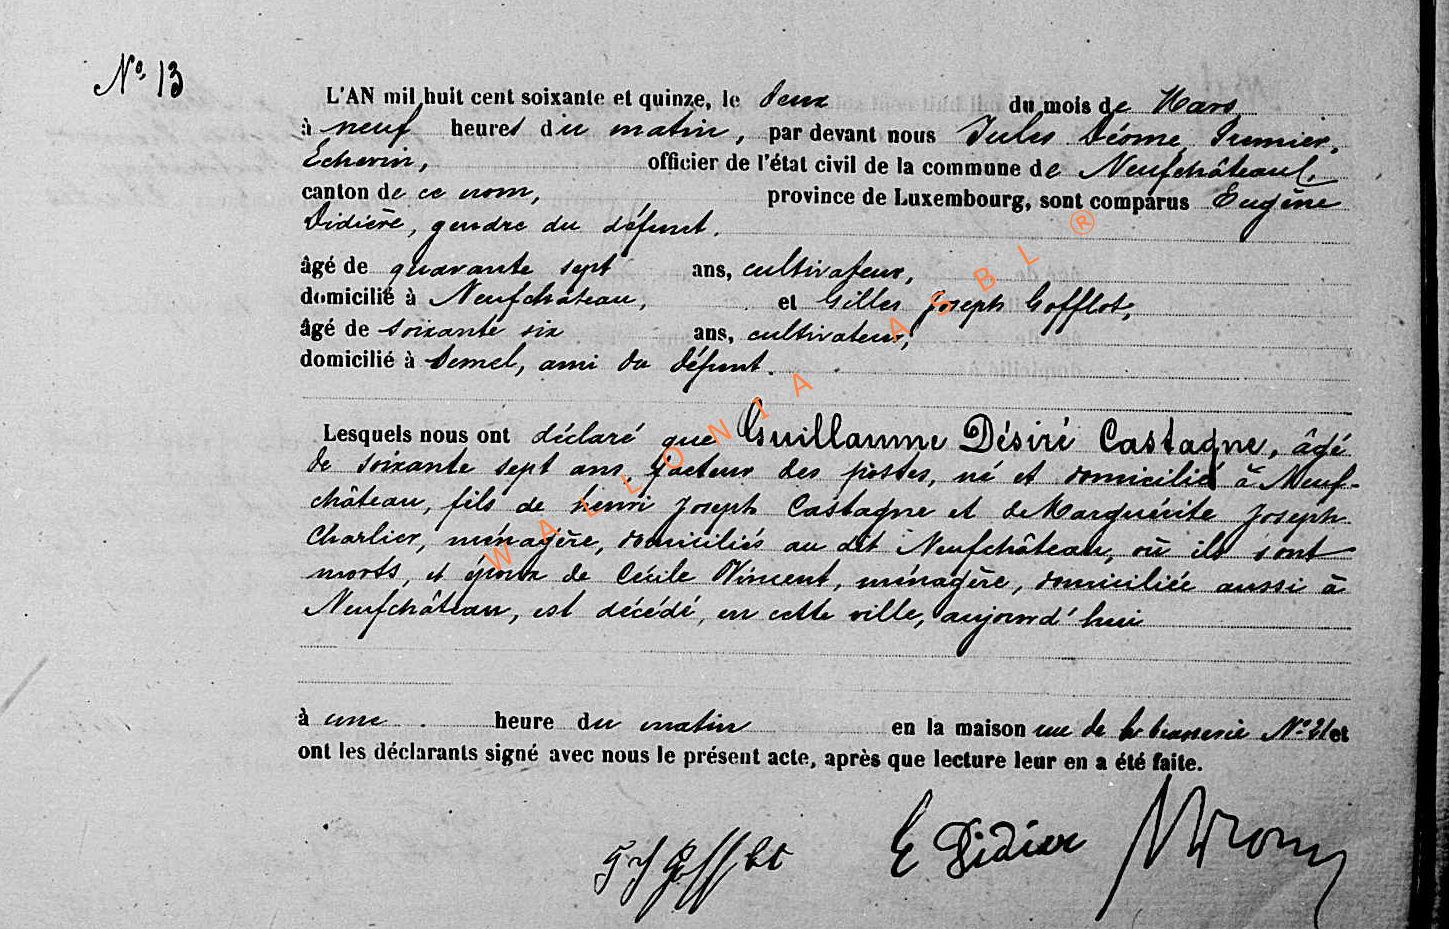 N° 13
L'AN mil huit cent soixante et quinze, le deux du mois de Mars
à neuf heures du matin, par devant nous Jules Déome, Premier
Echevin, officier de l'état civil de la commune de Neufchâteau,
canton de ce nom, province de Luxembourg, sont comparus Eugène
Didière, gendre du défunt.
âgé de quarante sept ans, cultivateur,
domicilié à Neufchâteau, et Gilles Joseph Gofflot,
âgé de soixante six ans, cultivateur,
domicilié à Semel, ami du défunt.
Lesquels nous ont déclaré que Guillaume Désiré Castagne, âgé
de soixante sept ans, facteur des postes, né et domicilié à Neuf-
château, fils de henri Joseph Castagne et de Marguérite Joseph
Charlier, ménagère, domiciliés au dit Neufchâteau, où ils sont
morts, et époux de Cécile Vincent, ménagère, domiciliée aussi à
Neufchâteau, est décédé, en cette ville, aujourd'hui
à une heure du matin en la maison rue de la brasserie N° 21 et
ont les déclarants signé avec nous le présent acte, après que lecture leur en a été faite.
G J Gofflot E Didier
WALLONIA ASBL ®